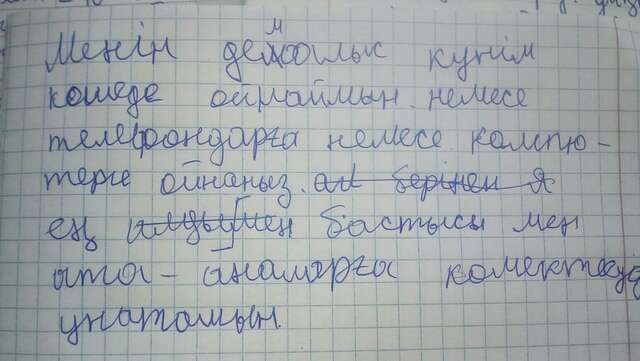 Менің демолык күнім
кошеде ойнаймын. немесе
телефондарға немесе компю-
терге ойнаңыз. ал берінен я
ең алдымен бастысы мен
ата-анамарға комектесуді
унатамын.